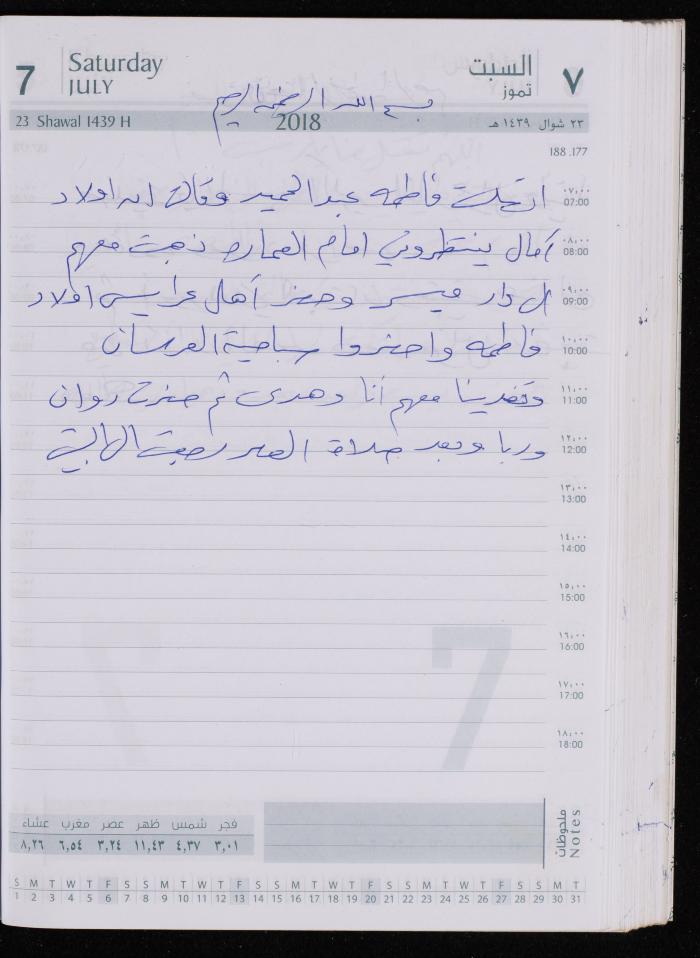 7
Saturday
JULY
السبت
تموز
٧
بسم الله الرحمن الرحيم
23 Shawal 1439 H
2018
٢٣ شوال ١٤٣٩ هـ
188 .177
اتصلت فاطمه عبد الحميد وقالت ان اولاد
٠٧,٠٠
07:00
آمال ينتظروني امام العماره ذهبت معهم
٠٨,٠٠
08:00
ال دار ميسر وحضر أهل عرايس اولاد
٠٩,٠٠
09:00
فاطمه واحضروا صباحية العرسان
١٠,٠٠
10:00
وتغدينا معهم أنا وهدى ثم حضرت روان
١١,٠٠
11:00
وربا وبعد صلاة العصر رجعت الى البيت
١٢,٠٠
12:00
١٣,٠٠
13:00
١٤,٠٠
14:00
١٥,٠٠
15:00
١٦,٠٠
16:00
١٧,٠٠
17:00
١٨,٠٠
18:00
7
فجر شمس ظهر عصر مغرب عشاء
٣,٠١ ٤,٣٧ ١١,٤٣ ٣,٢٤ ٦,٥٤ ٨,٢٦
ملحوظات
Notes
S M T W T F S S M T W T F S S M T W T F S S M T W T F S S M T
1 2 3 4 5 6 7 8 9 10 11 12 13 14 15 16 17 18 19 20 21 22 23 24 25 26 27 28 29 30 31